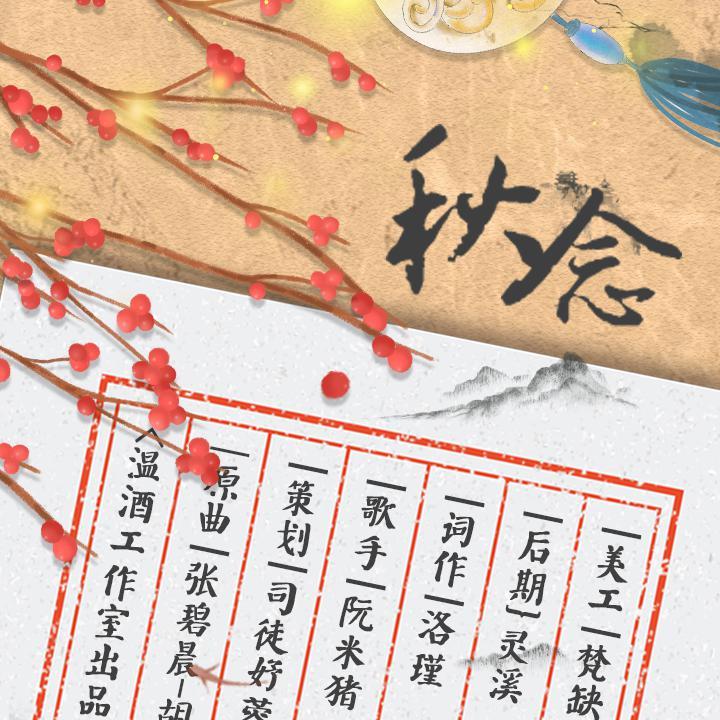 秋念
美工 梵缺
后期 灵溪
词作 洛瑾
歌手 阮米猪
策划 司徒妤蓉
原曲 张碧晨-胡
温酒工作室出品